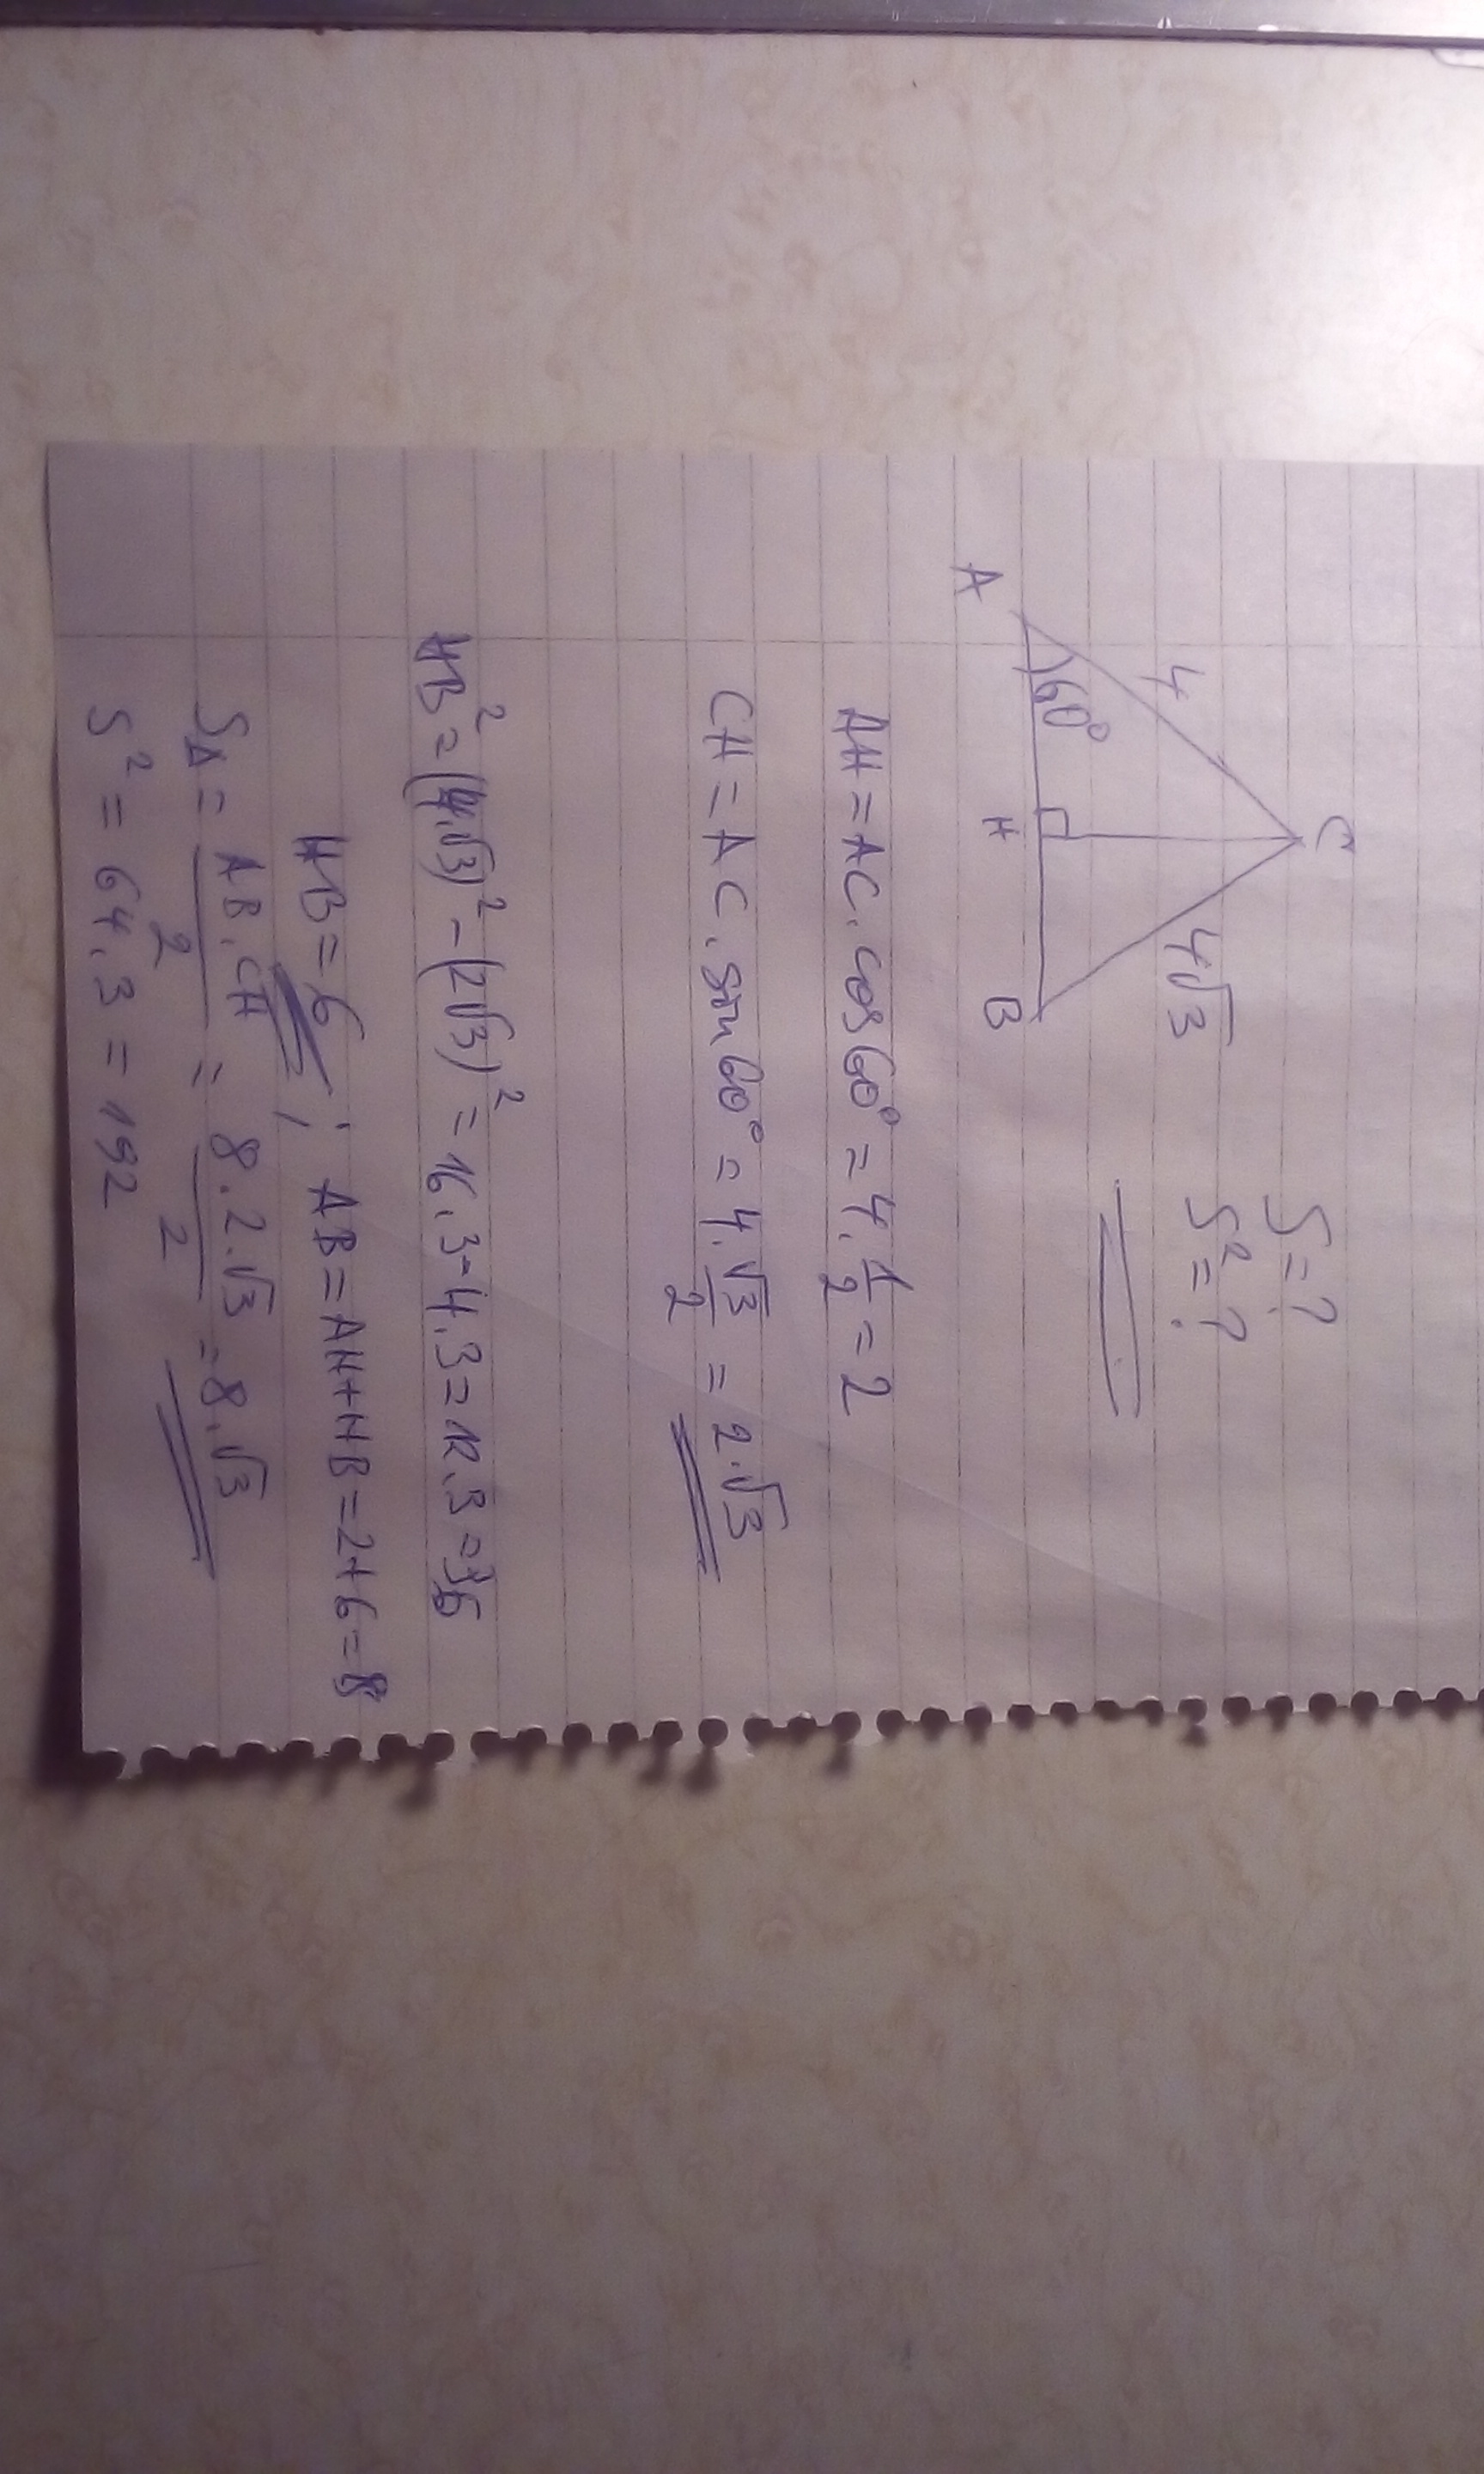 C
4
4√3
S=?
S²=?
60°
A
H
B
AH = AC . cos60° = 4 . 1/2 = 2
CH = AC . sin60° = 4 . √3/2 = 2.√3
HB² = (4.√3)² - (2√3)² = 16.3-4.3 = 12.3 = 36
HB = 6 ; AB = AH+HB = 2+6 = 8
S△ = AB.CH/2 = 8.2.√3/2 = 8.√3
S² = 64.3 = 192